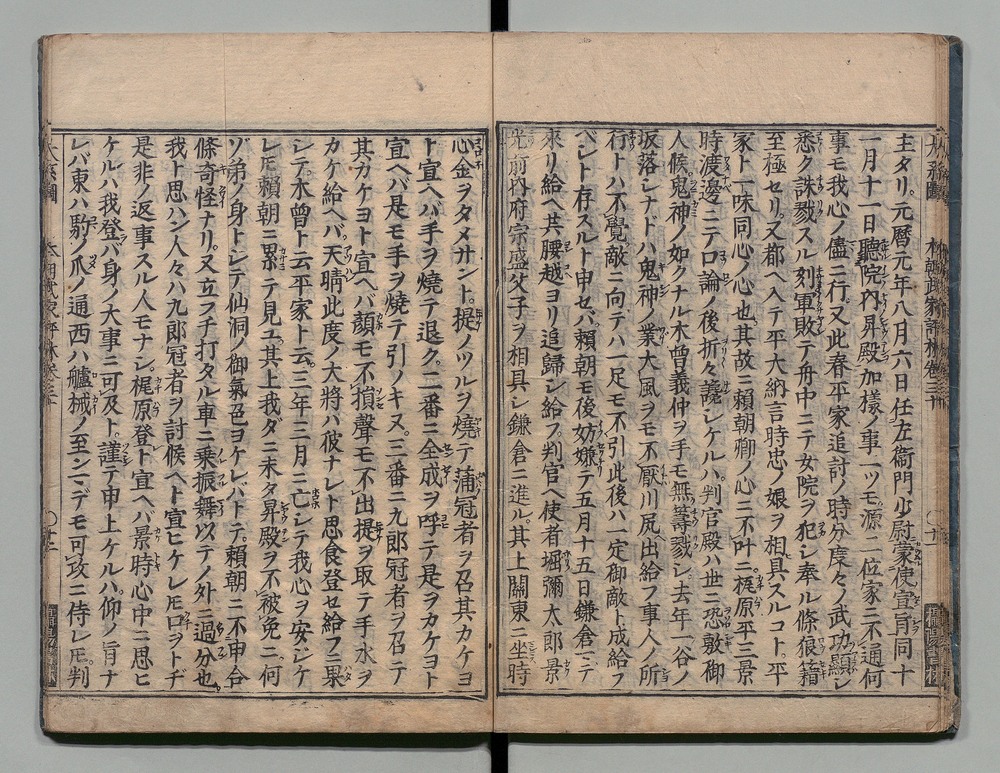 主タリ。元暦元年八月六日任左衛門少尉蒙使宣旨同十
一月十一日聽院内昇殿加樣ノ事一ツモ源二位家ニ不通何
事モ我心ノ儘ニ行又此春平家追討ノ時分度々ノ武功顯シ
悉ク誅戮スル刻軍敗テ舟中ニテ女院ヲ犯シ奉ル條狼藉
至極セリ。又都ヘ入テ平大納言時忠ノ娘ヲ相具スルコト。平
家ト一味同心ノ心也其故ニ頼朝卿ノ心ニ不叶ニ梶原平三景
時渡邊ニテ口論ノ後折々讒シケルハ。判官殿ハ世ニ恐敷御
人候。鬼神ノ如クナル木曽義仲ヲ手モ無籌戮シ。去年一谷ノ
坂落シナドハ鬼神ノ業大風ヲモ不厭川尻出給フ事人ノ所
行トハ不覺敵ニ向テハ一足モ不引此後ハ一定御敵ト成給フ
ベシト存スルト申セバ。頼朝モ後妨嫌テ五月十五日鎌倉ニテ
來リ給ヘ共腰越ヨリ追歸シ給フ判官ヘ使者堀彌太郎景
光前内府宗盛父子ヲ相具シ鎌倉ニ進ル。其上關東ニ坐時
心金ヲタメサント。提ノツルヲ燒テ蒲冠者ヲ召其カケヨ
ト宣ヘバ手ヲ燒テ退ク。二番ニ全成ヲ呼テ是ヲカケヨト
宣ヘバ是モ手ヲ燒テ引ノキヌ。三番ニ九郎冠者ヲ召テ
其カケヨト宣ヘバ顔モ不損聲モ不出提ヲ取テ手水ヲ
カケ給ヘバ。天晴此度ノ大將ハ彼ナレト思食登セ給フニ果
シテ。木曽ト云平家ト云。三年三月ニ亡シテ我心ヲ安ジケ
レ𪜈頼朝ニ累テ見エ。其上我ダニ未タ昇殿ヲ不被免ニ何
ゾ弟ノ身トシテ仙洞ノ御氣色ヨケレバトテ。頼朝ニ不申合
條奇怪ナリ。又立フチ打タル車ニ乗振舞以テノ外ニ過分也。
我ト思ハン人々ハ九郎冠者ヲ討候ヘト宣ヒケレ𪜈口ヲトヂ
是非ノ返事スル人モナシ。梶原登ト宣ヘバ景時心中ニ思ヒ
ケルハ我登バ身ノ大事ニ可及ト。謹テ申上ケルハ。仰ノ旨ナ
レバ東ハ駒ノ爪ノ通西ハ艫械ノ至ンマデモ可攻ニ侍レ𪜈。判